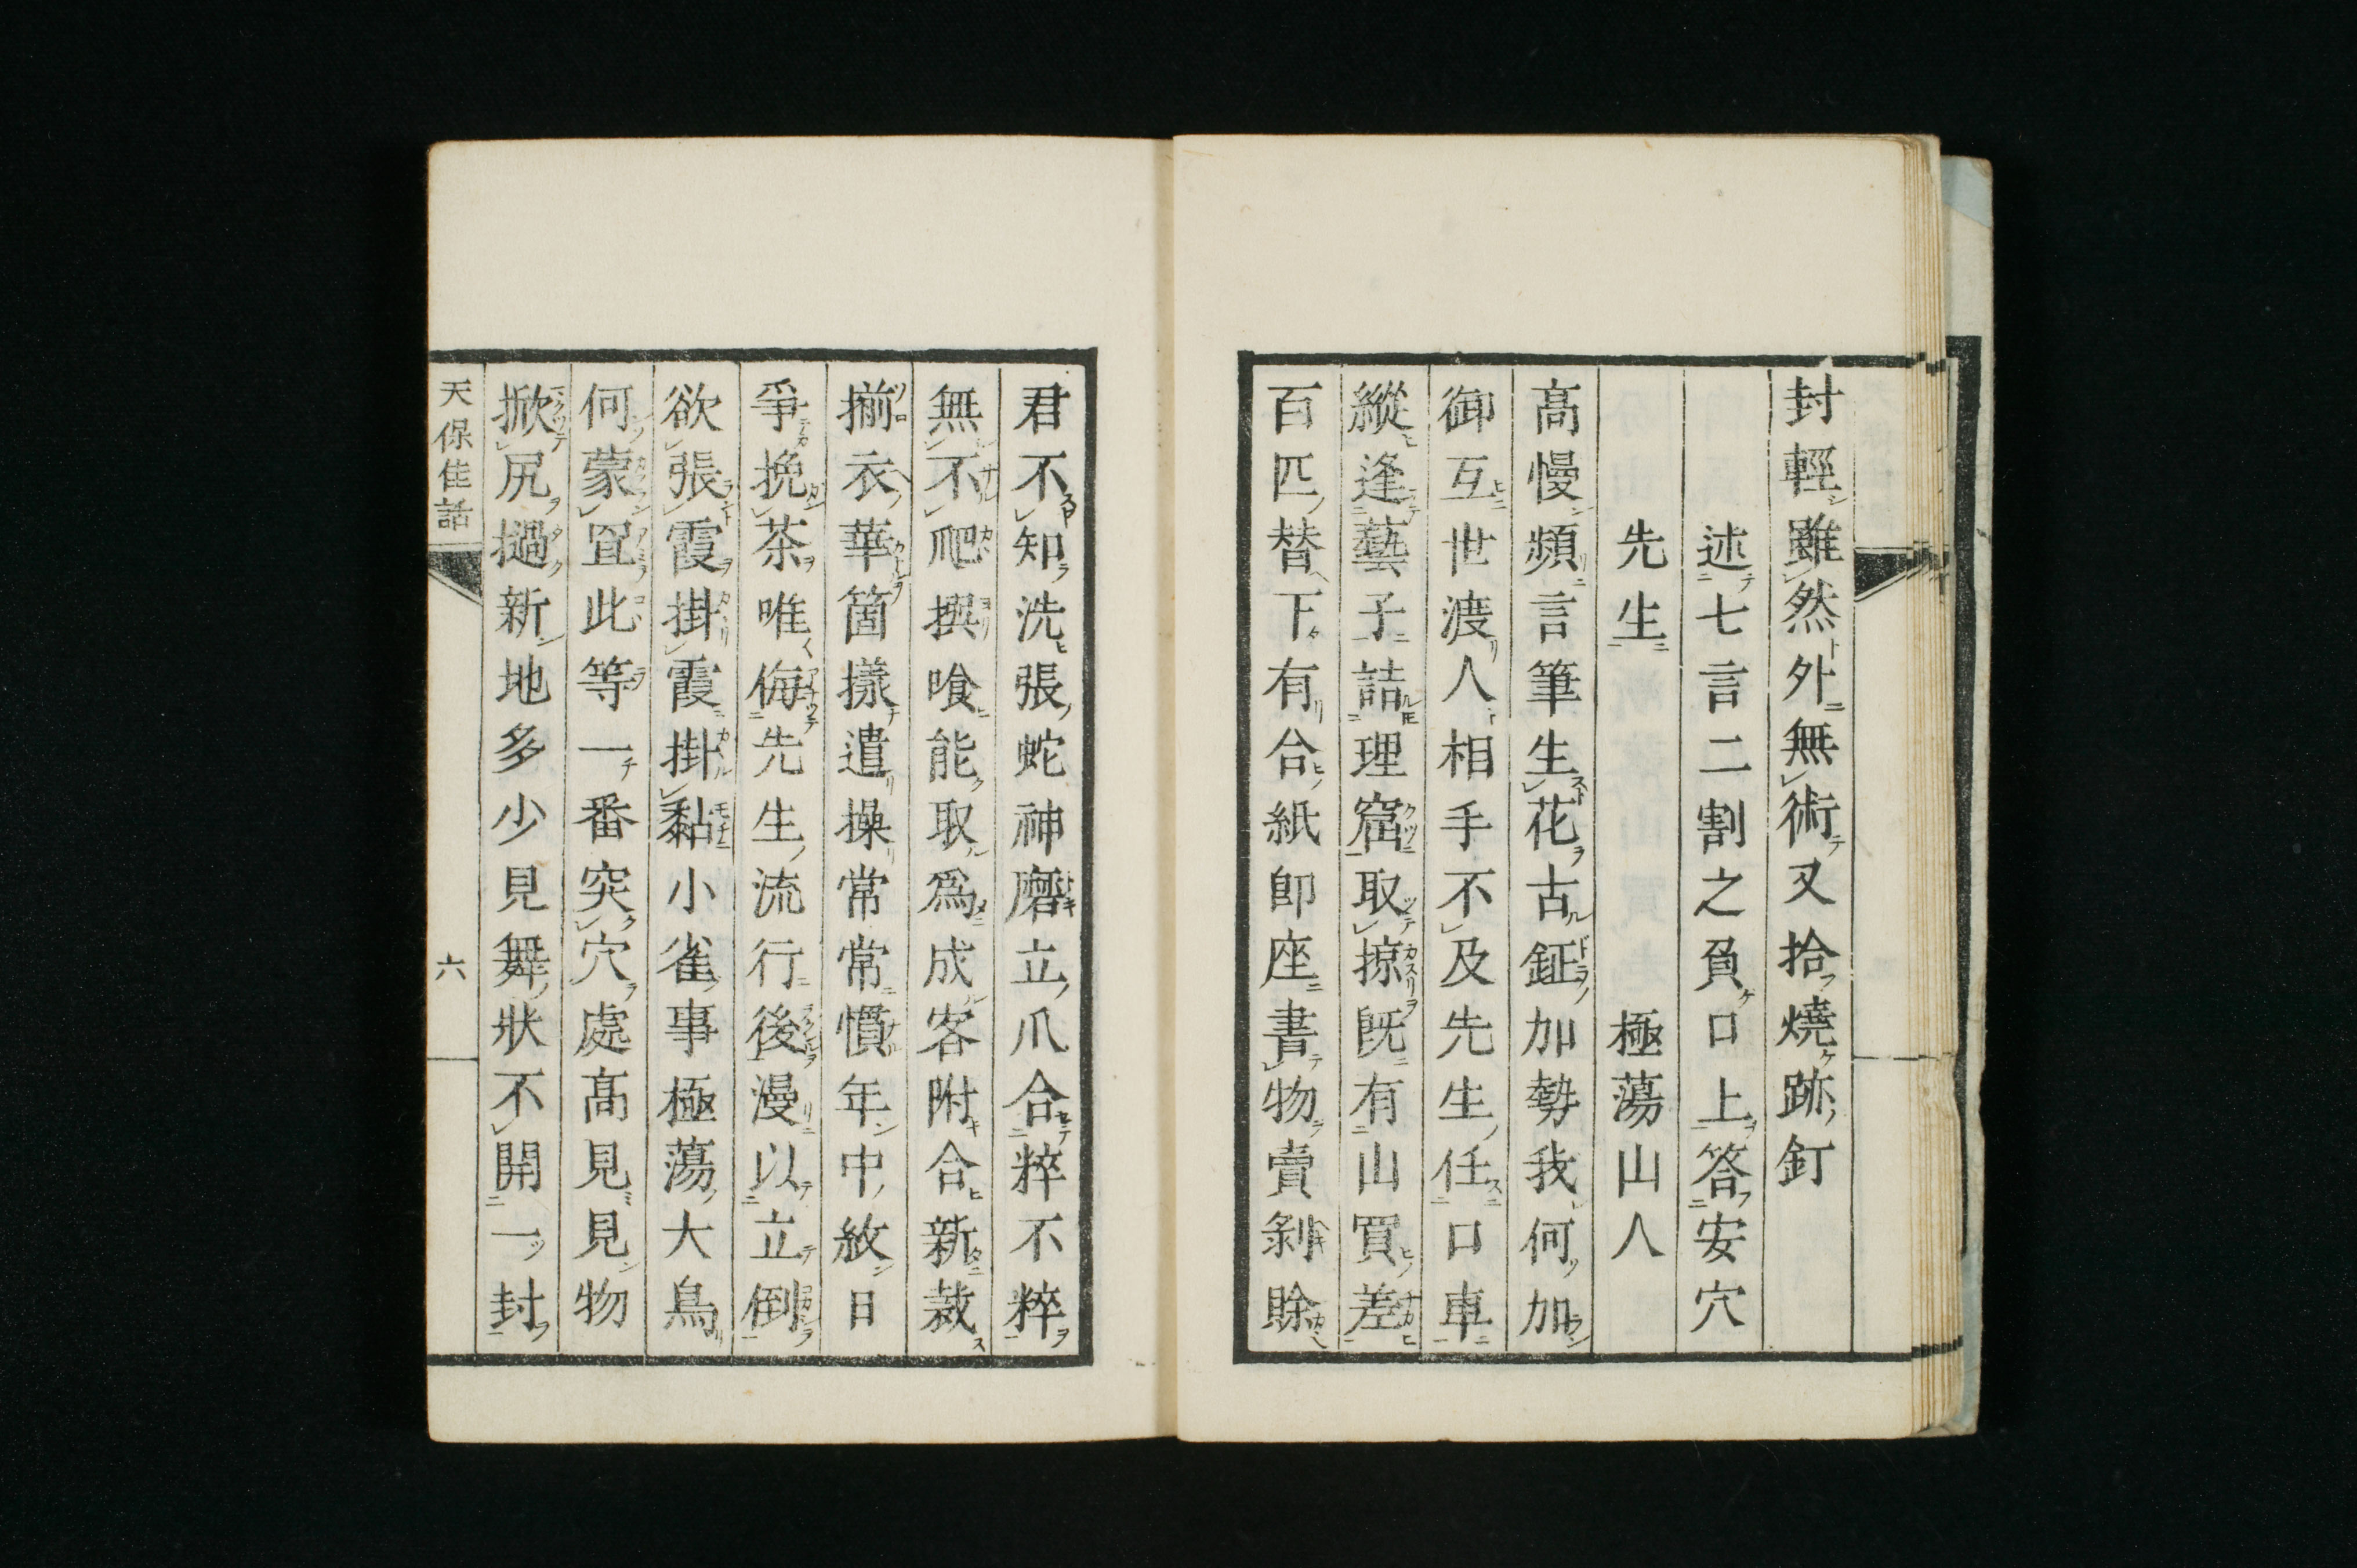 封輕雖然外無術又拾燒跡釘
述七言二割之負口上答安穴
先生 極蕩山人
高慢頻言筆生花古鉦加勢我何加
御互世渡人相手不及先生任口車
縱逢藝子詰理窟取掠既有山買差
百匹替下有合紙即座書物賣剝賖
君不知洗張蛇神磨立爪合粹不粹
無不爬撰喰能取爲成客附合新裁
揃衣華箇㨾遣操常常慣年中紋日
爭挽茶唯侮先生流行後漫以立倒
欲張霞掛霞掛黏小雀事極蕩大鳥
何蒙罝此等一番突穴處高見見物
掀尻撾新地多少見舞狀不開一封
天保佳話
六